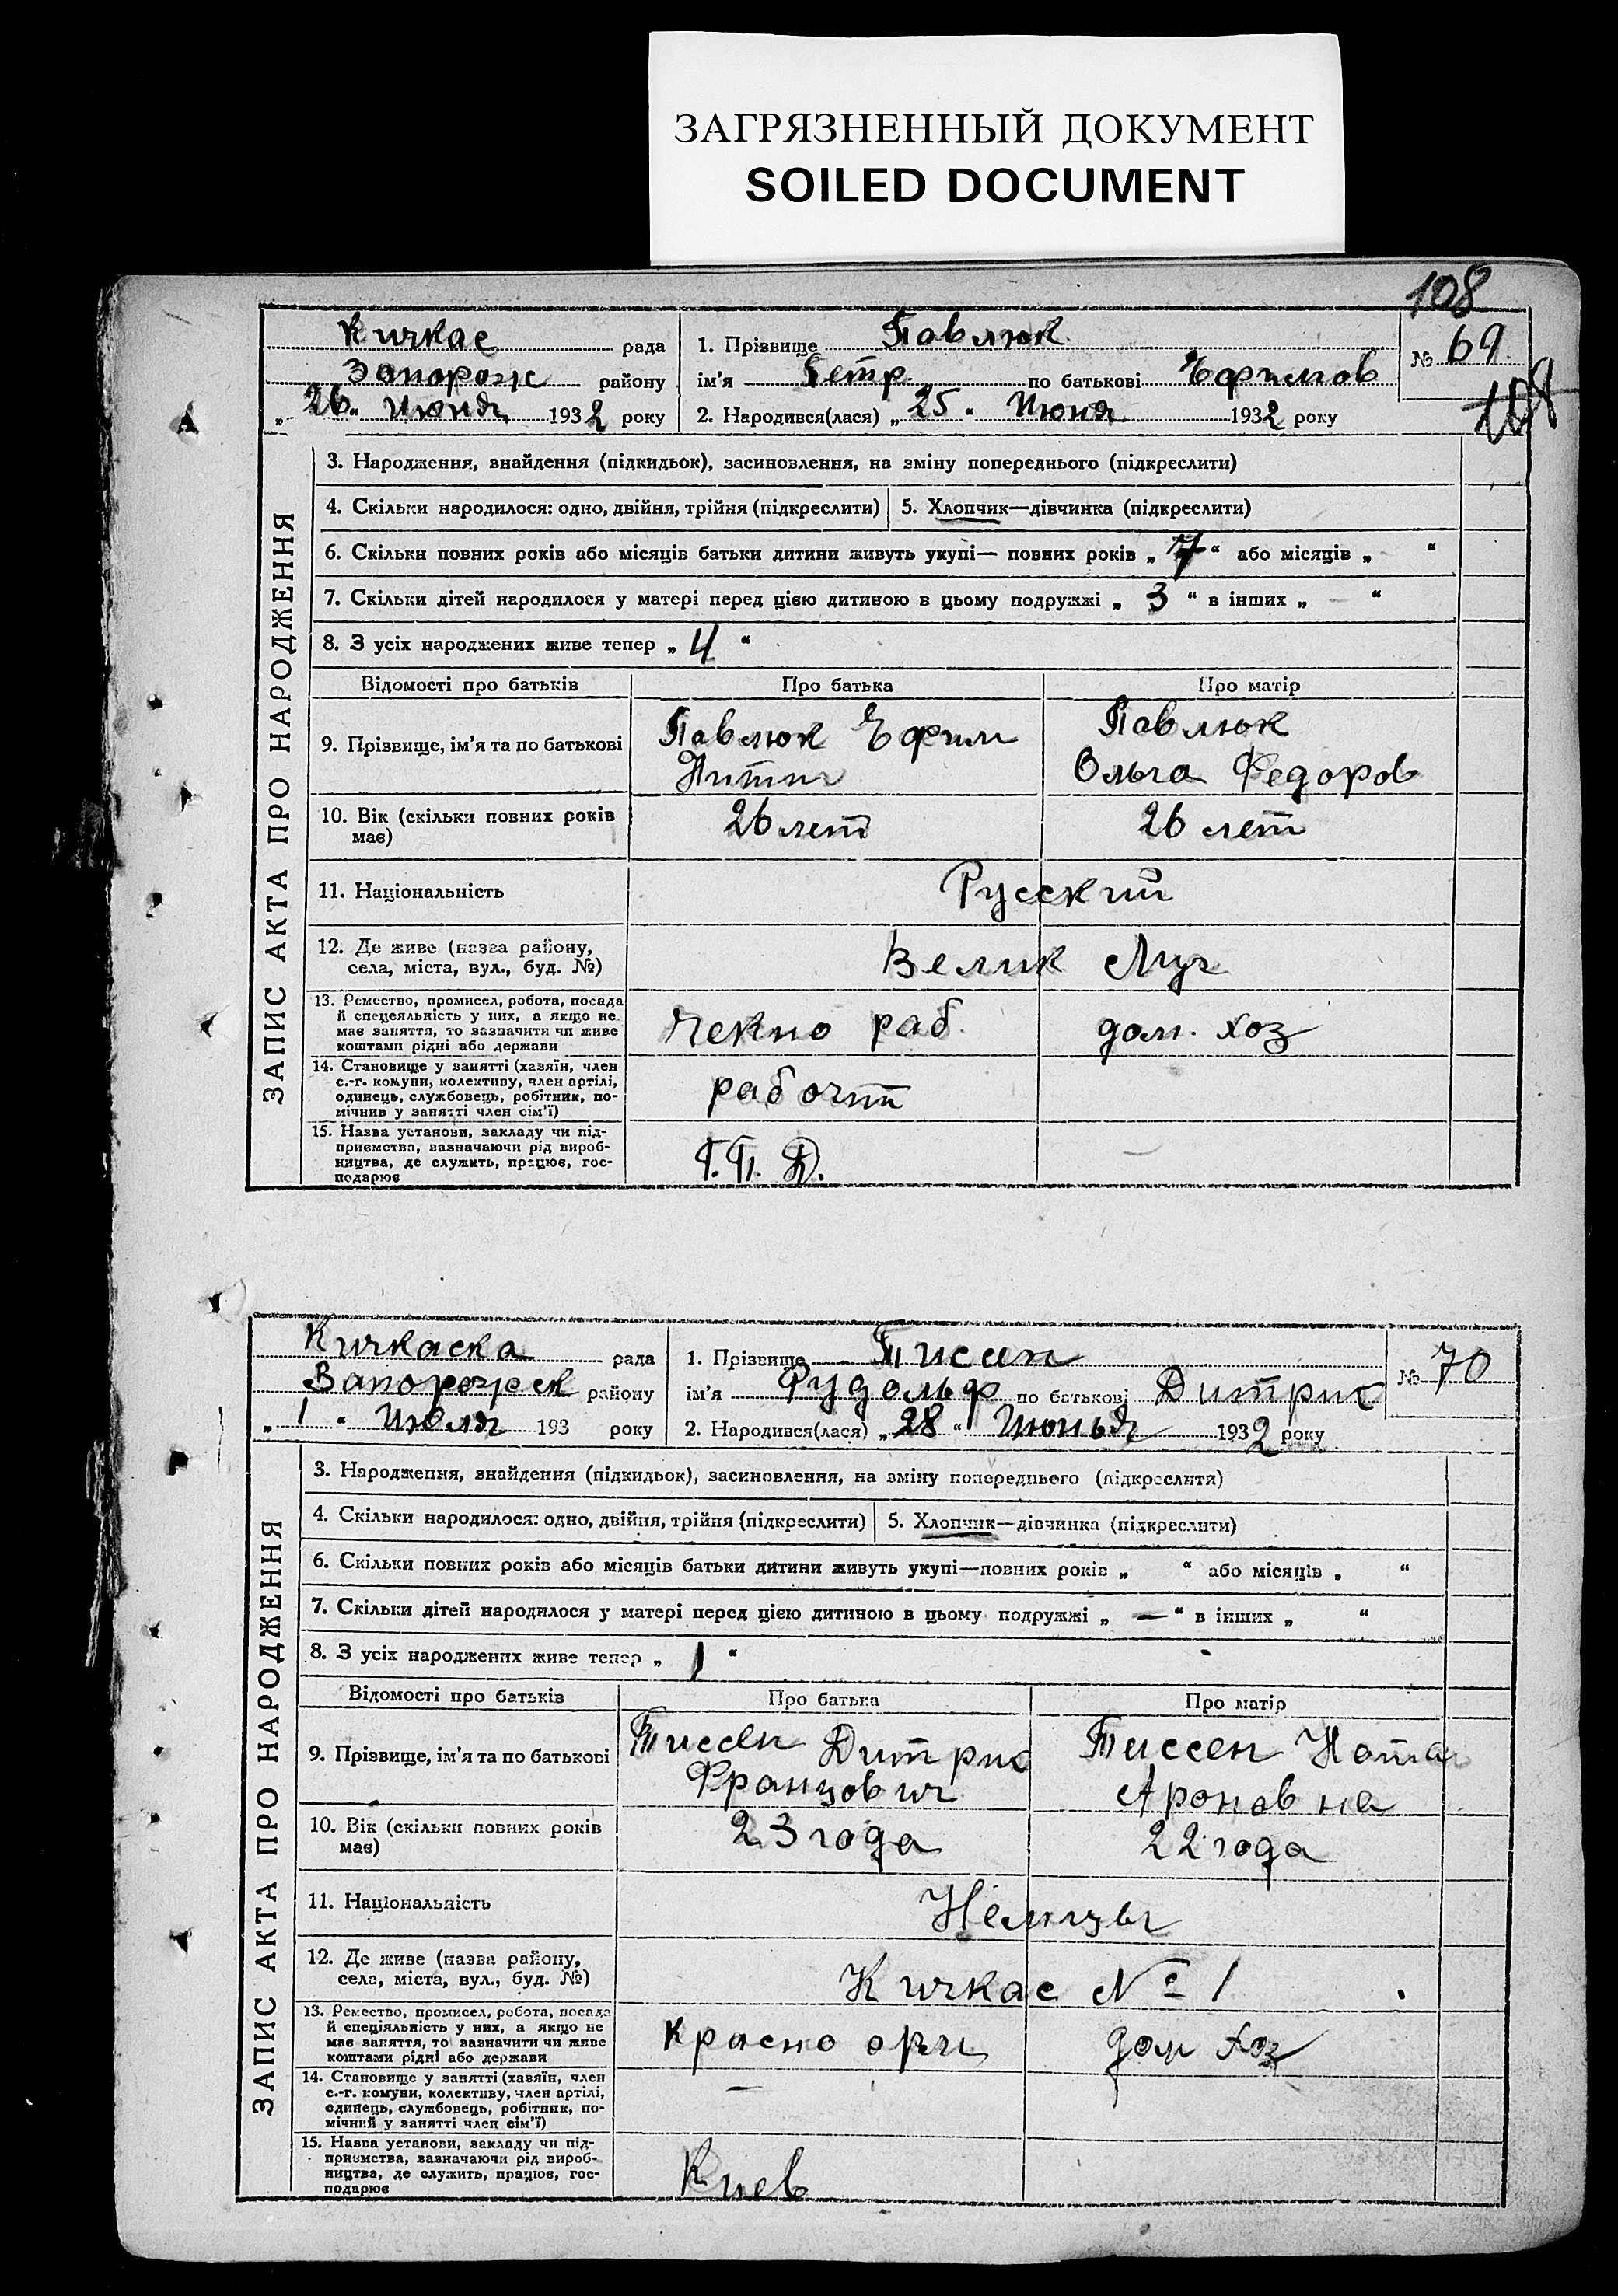 ЗАГРЯЗНЕННЫЙ ДОКУМЕНТ
SOILED DOCUMENT
108
Кичкас рада
Запорож району
„ 26 “ Июня 1932 року
1. Прізвище Павлюк
ім’я Петр по батькові Ефимов
2. Народився(лася) „ 25 “ Июня 1932 року
№ 69
108
ЗАПИС АКТА ПРО НАРОДЖЕННЯ
3. Народження, знайдення (підкидьок), засиновлення, на зміну попереднього (підкреслити)
4. Скільки народилося: одно, двійня, трійня (підкреслити)
5. Хлопчик—дівчинка (підкреслити)
6. Скільки повних років або місяців батьки дитини живуть укупі— повних років „ 7 “ або місяців „ “
7. Скільки дітей народилося у матері перед цією дитиною в цьому подружжі „ 3 “ в інших „ — “
8. З усіх народжених живе тепер „ 4 “
Відомості про батьків
Про батька
Про матір
9. Прізвище, ім’я та по батькові
Павлюк Ефим
Павлюк
Ольга Федоров
10. Вік (скільки повних років
має)
26 лет
26 лет
11. Національність
Русский
12. Де живе (назва району,
села, міста, вул., буд. №)
Велик Луг
13. Ремество, промисел, робота, посада
й спецеяльність у них, а якщо не
має заняття, то вазначити чи живе
коштами рідні або держави
раб.
дом. хоз
14. Становище у занятті (хазяїн, член
с.-г. комуни, колективу, член артілі,
одинець, службовець, робітник, по-
мічник у занятті член сім’ї)
рабочий
15. Назва установи, закладу чи під-
приємства, вазначаючи рід вироб-
ництва, де служить, працює, гос-
подарює
—
Кичкаска рада
Запорожск району
„ 1 “ Июля 193 року
1. Прізвище Тисен
ім’я Рудольф по батькові Дитрих
2. Народився(лася) „ 28 “ Июнья 1932 року
№ 70
ЗАПИС АКТА ПРО НАРОДЖЕННЯ
3. Народження, знайдення (підкидьок), засиновлення, на зміну попереднього (підкреслити)
4. Скільки народилося: одно, двійня, трійня (підкреслити)
5. Хлопчик—дівчинка (підкреслити)
6. Скільки повних років або місяців батьки дитини живуть укупі—повних років „ “ або місяців „ “
7. Скільки дітей народилося у матері перед цією дитиною в цьому подружжі „ — “ в інших „ “
8. З усіх народжених живе тепер „ 1 “
Відомості про батьків
Про батька
Про матір
9. Прізвище, ім’я та по батькові
Тиссен Дитрих
Францович
Тиссен Ната
Ароновна
10. Вік (скільки повних років
має)
23 года
22 года
11. Національність
Немцы
12. Де живе (назва району,
села, міста, вул., буд. №)
Кичкас № 1
13. Ремество, промисел, робота, посада
й спеціяльність у них, а якщо не
має заняття, то вазначити чи живе
коштами рідні або держави
Красно арм
дом хоз
14. Становище у занятті (хазяїн, член
с.-г. комуни, колективу, член артілі,
одинець, службовець, робітник, по-
мічний у занятті член сім’ї)
—
15. Назва установи, закладу чи під-
приємства, вазначаючи рід вироб-
ництва, де служить, працює, гос-
подарює
Киев